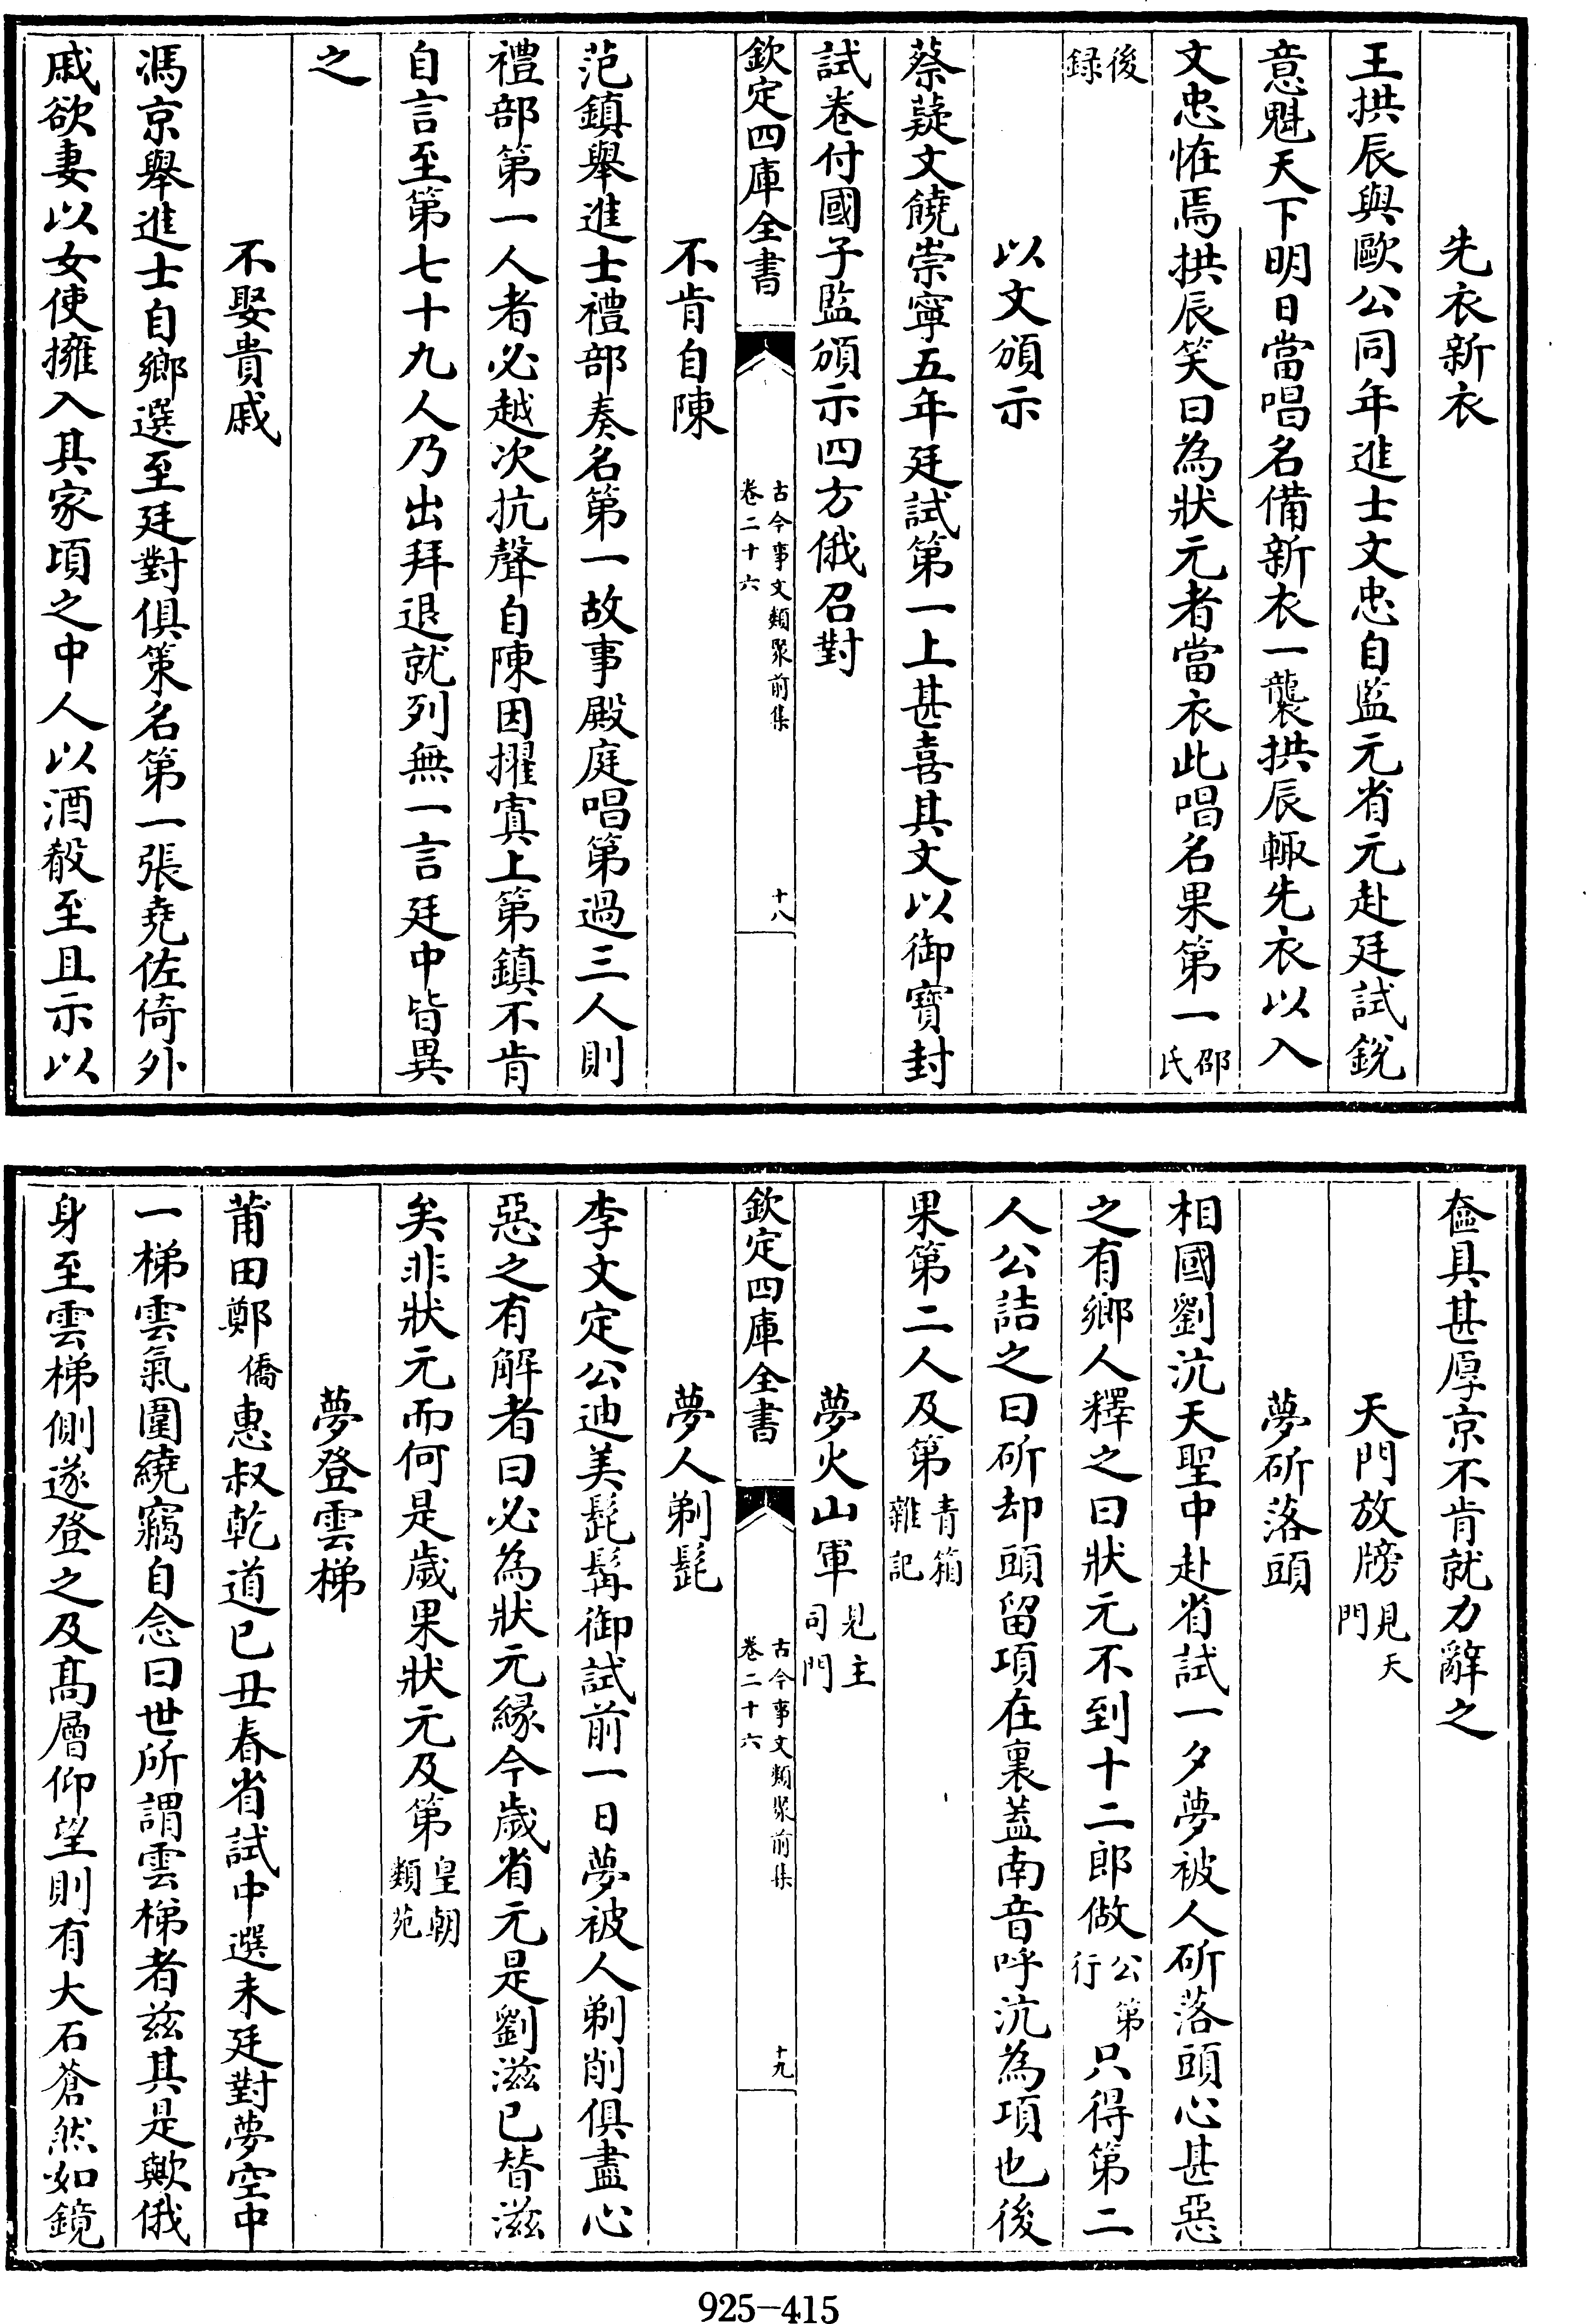 先衣新衣
王拱辰與歐公同年進士文忠自監元省元赴廷試銳
意魁天下明日當唱名備新衣一襲拱辰輒先衣以入
文忠恠焉拱辰笑曰為狀元者當衣此唱名果第一邵氏
後録
以文頒示
蔡薿文饒崇寧五年廷試第一上甚喜其文以御寶封
試卷付國子監頒示四方俄召對
欽定四庫全書 古今事文類聚前集 卷二十六 十八
不肯自陳
范鎮舉進士禮部奏名第一故事殿庭唱第過三人則
禮部第一人者必越次抗聲自陳因擢寘上第鎮不肯
自言至第七十九人乃出拜退就列無一言廷中皆異
之
不娶貴戚
馮京舉進士自鄉選至廷對俱策名第一張堯佐倚外
戚欲妻以女使擁入其家頃之中人以酒殽至且示以
奩具甚厚京不肯就力辭之
天門放牓見天門
夢斫落頭
相國劉沆天聖中赴省試一夕夢被人斫落頭心甚惡
之有鄉人釋之曰狀元不到十二郎做公第行只得第二
人公詰之曰斫却頭留項在裏蓋南音呼沆為項也後
果第二人及第青箱雜記
夢火山軍見主司門
欽定四庫全書 古今事文類聚前集 卷二十六 十九
夢人剃髭
李文定公迪美髭髯御試前一日夢被人剃削俱盡心
惡之有解者曰必為狀元緣今歲省元是劉滋已替滋
矣非狀元而何是歲果狀元及第皇朝類苑
夢登雲梯
莆田鄭僑惠叔乾道已丑春省試中選未廷對夢空中
一梯雲氣圍繞竊自念曰世所謂雲梯者茲其是歟俄
身至雲梯側遂登之及髙層仰望則有大石蒼然如鏡
925-415